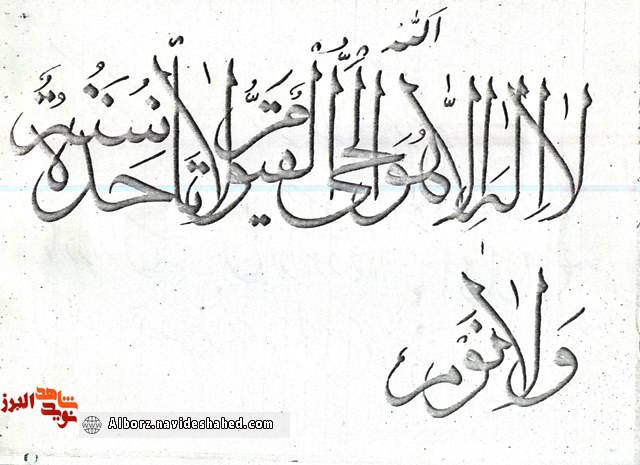 الله
لا اله الا هو الحی القیوم لا تاخذه سنة
ولا نوم
نوید شاهد البرز
Alborz.navideshahed.com